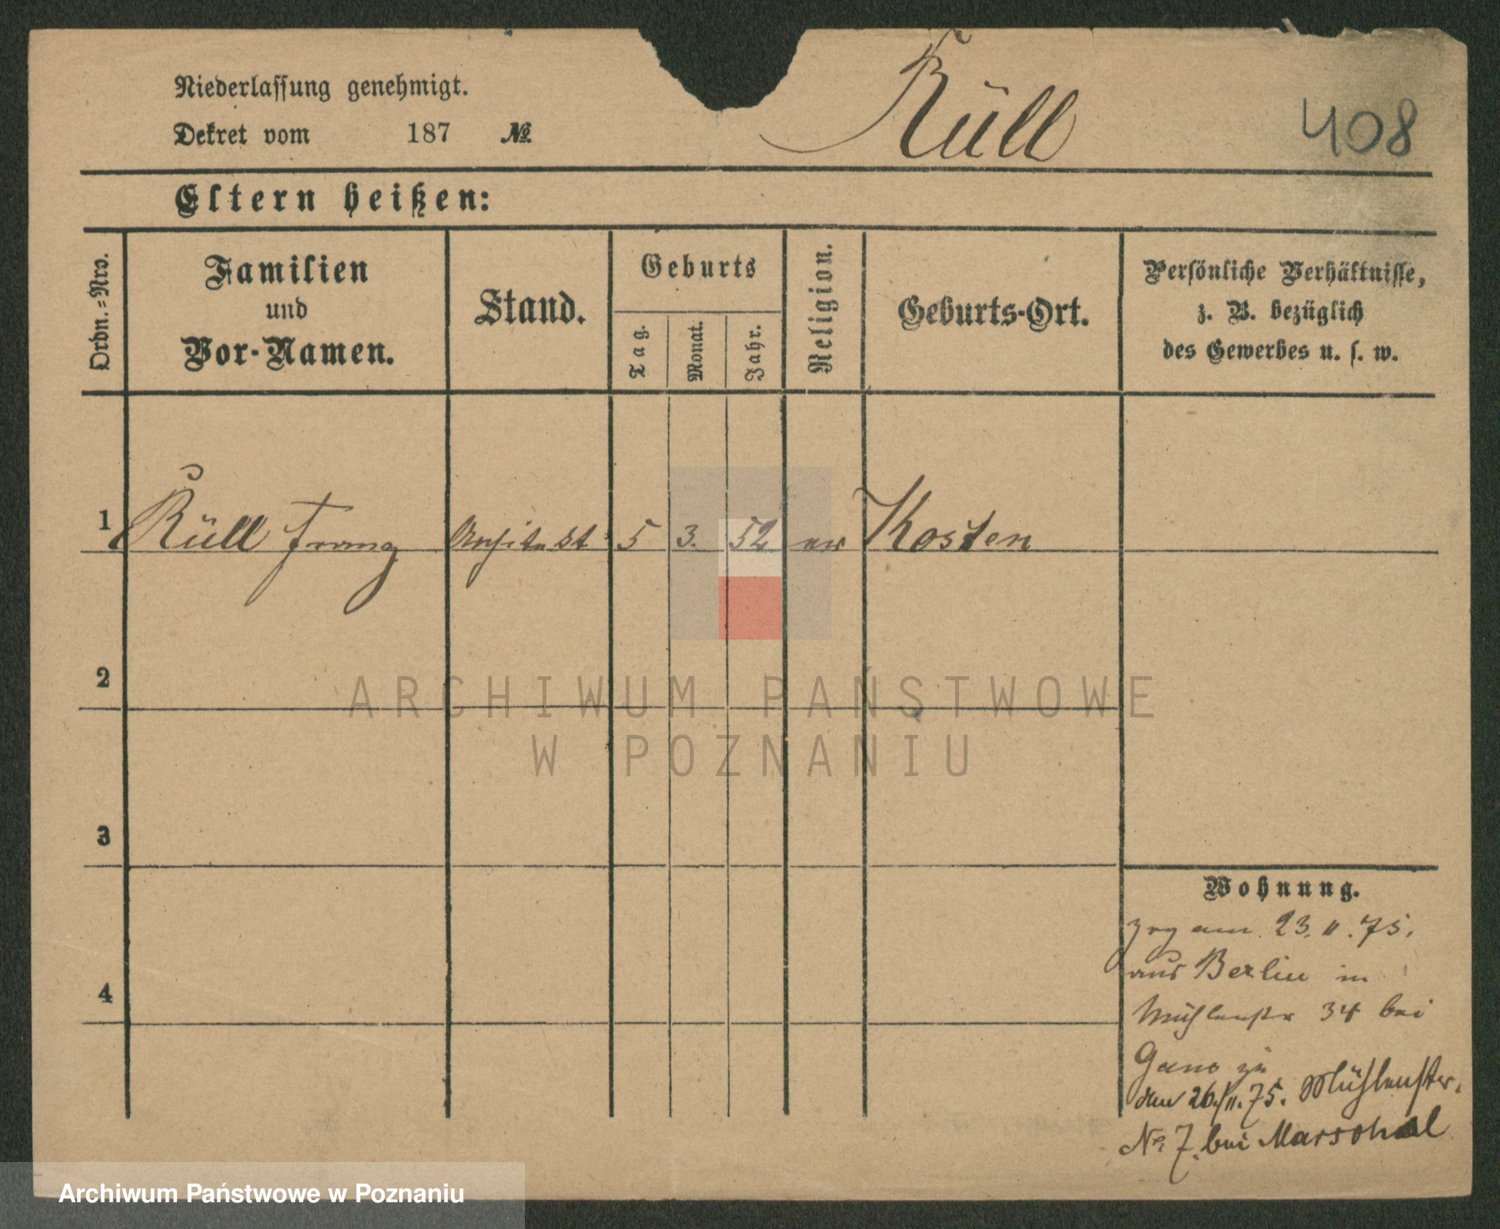 Niederlassung genehmigt.
Dekret vom 187 №
Rüll
408
Eltern heißen:
Ordn.-Nro.
Familien
und
Vor-Namen.
Stand.
Geburts
Tag.
Monat.
Jahr.
Religion.
Geburts-Ort.
Persönliche Verhältnisse,
z. B. bezüglich
des Gewerbes u. s. w.
1 Rüll Franz Architekt 5 3. 52 ev Kosten
2
3
4
ARCHIWUM PAŃSTWOWE
W POZNANIU
Wohnung.
zog am 23. 11. 75.
aus Berlin in
Mühlenstr 34 bei
zu
den 26./11. 75. Mühlenstr.
No 7. bei Marschal
Archiwum Państwowe w Poznaniu